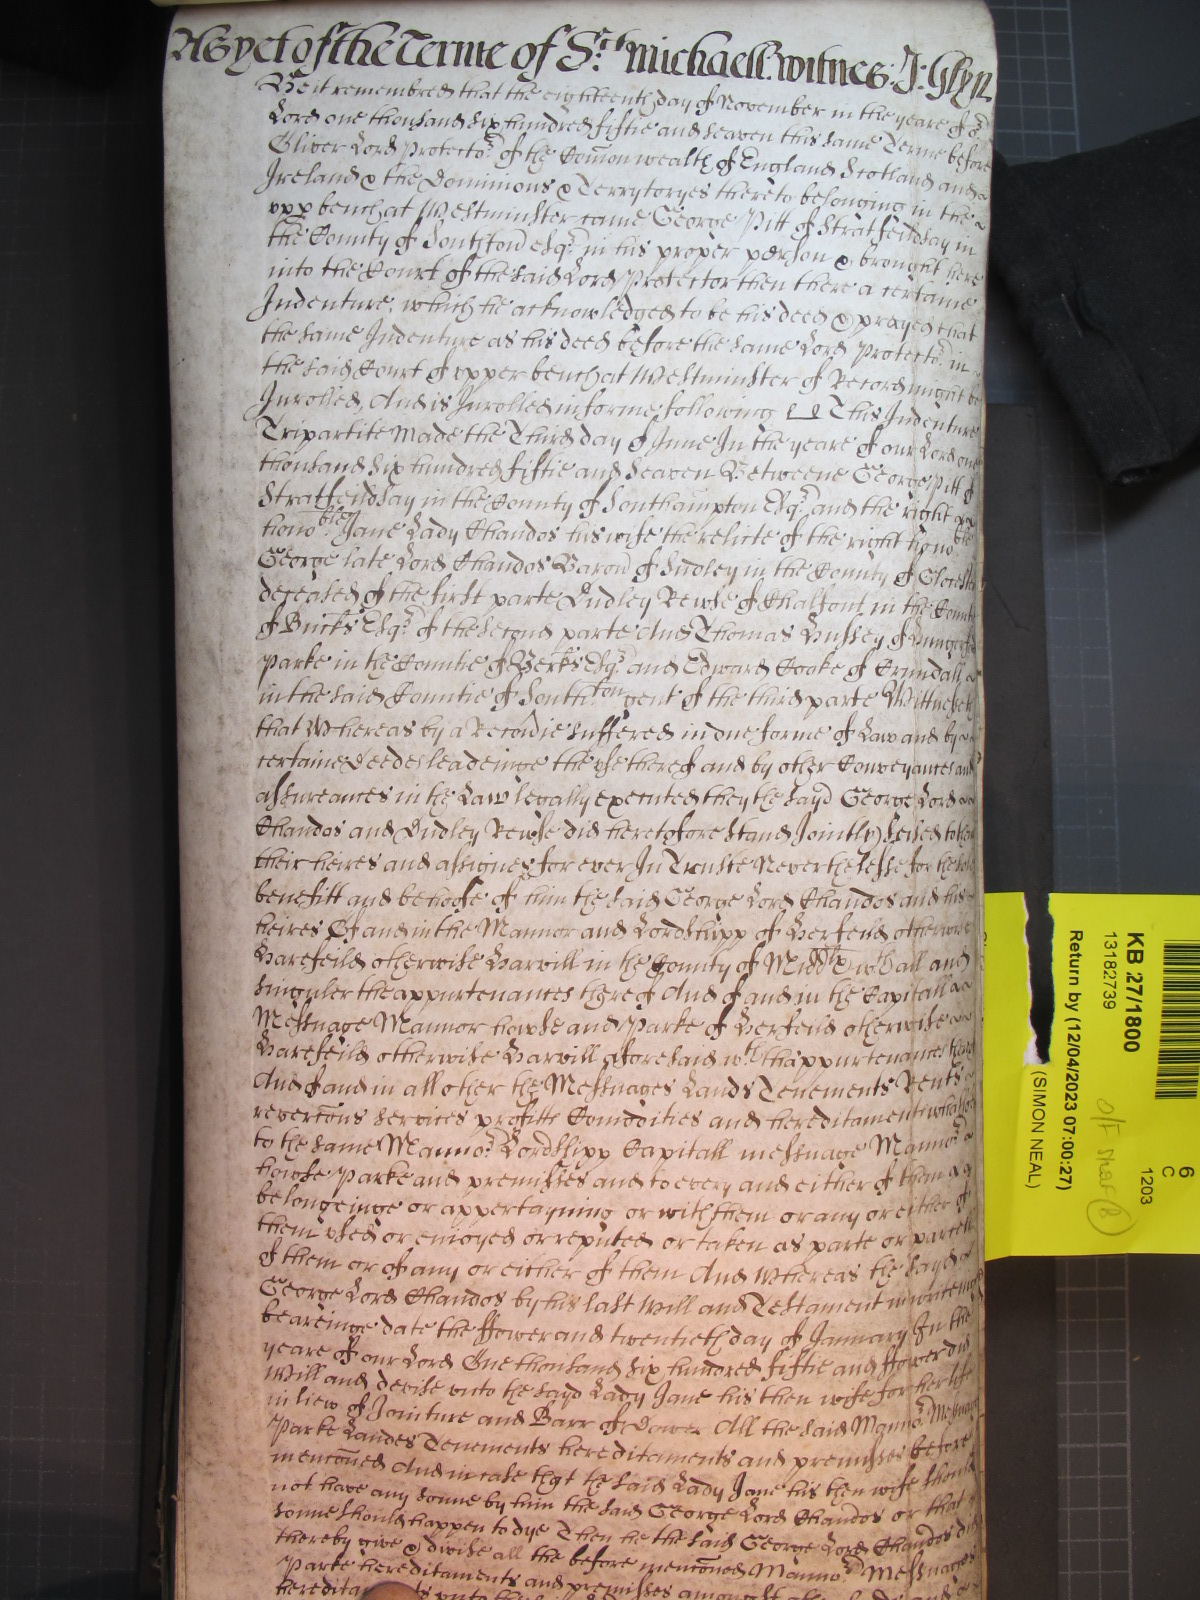 As yet of the Terme of St. Michaell: witnes: J: Glyn
Be it remembred that the eighteenth day of November in the yeare of or
Lord one thousand six hundred fiftie and seaven this same Terme before
Oliver Lord Protector of the Comon wealth of England Scotland and
Ireland & the Dominions & Terrytoryes thereto belonging in the
upp bench at Westminster came George Pitt of Stratfeildsay in
the County of Southton esqr in his proper person & brought here
into the Court of the said Lord Protector then there a certaine
Indenture, which he acknowledged to be his deed & prayed that
the same Indenture as his deed before the same Lord Protector in
the said Court of upper bench at Westminster of Record might be
Inrolled, And is Inrolled in forme following This Indenture
Tripartite Made the Third day of June In the yeare of our Lord one
thousand six hundred fiftie and seaven Betweene George Pitt of
Stratfeildsay in the County of Southampton Esqr and the right
honoble Jane Lady Chandos his wife the relicte of the right honoble
George late Lord Chandos Baron of Sudley in the County of Glocester
deceased of the first parte Dudley Rewse of Chalfont in the County
of Bucks Esqr of the second parte And Thomas Hussey of Hungerford
Parke in the Countie of Berks Esqr and Edward Cooke of Crundall
in the said Countie of Southton gent of the third parte Wittnesseth
that Whereas by a Recovrie suffered in due forme of Law and by
certaine Deedes leadeinge the use thereof and by other Conveyances and
assureances in the Law legally executed they the sayd George Lord
Chandos and Dudley Rewse did heretofore stand Jointly seised to them
their heires and assignes for ever In Truste Neverthelesse for the sole
benefitt and behoofe of him the said George Lord Chandos and his
heires Of and in the Mannor and Lordshipp of Herfeild otherwise
Harefeild otherwise Harvill in the County of Middx wth all and
singuler the appurtenances thereof And of and in the Capitall
Messuage Mannor howse and Parke of Herfeild otherwise
Harefeild otherwise Harvill aforesaid wth thappurtenances thereof
And of and in all other the Messuages Lands Tenements Rents
revercons services profitts Comodities and hereditaments whatsoever
to the same Mannor Lordshipp Capitall messuage Mannor
howse Parke and premisses and to every and either of them
belongeinge or appertayning or with them or any or either of
them used or enjoyed or reputed or taken as parte or parcell
of them or of any or either of them And Whereas the sayd
George Lord Chandos by his last Will and Testament in writeing
beareinge date the ffower and twentieth day of January In the
yeare of our Lord One thousand six hundred fiftie and ffower did
Will and devise unto the sayd Lady Jane his then wife for her life
in liew of Jointure and Barr of Dower All the said Mannor Messuage
Parke Landes Tenements hereditaments and premisses before
menconed And in case that the said Lady Jane his then wife should
not have any sonne by him the said George Lord Chandos or that
sonne should happen to dye Then he the said George Lord Chandos did
thereby give & devise all the before menconed Mannor Messuages
Parke hereditaments and premisses amongst
KB 27/1800
13182739
Return by (12/04/2023 07:00:27)
(SIMON NEAL)
6
C
1203